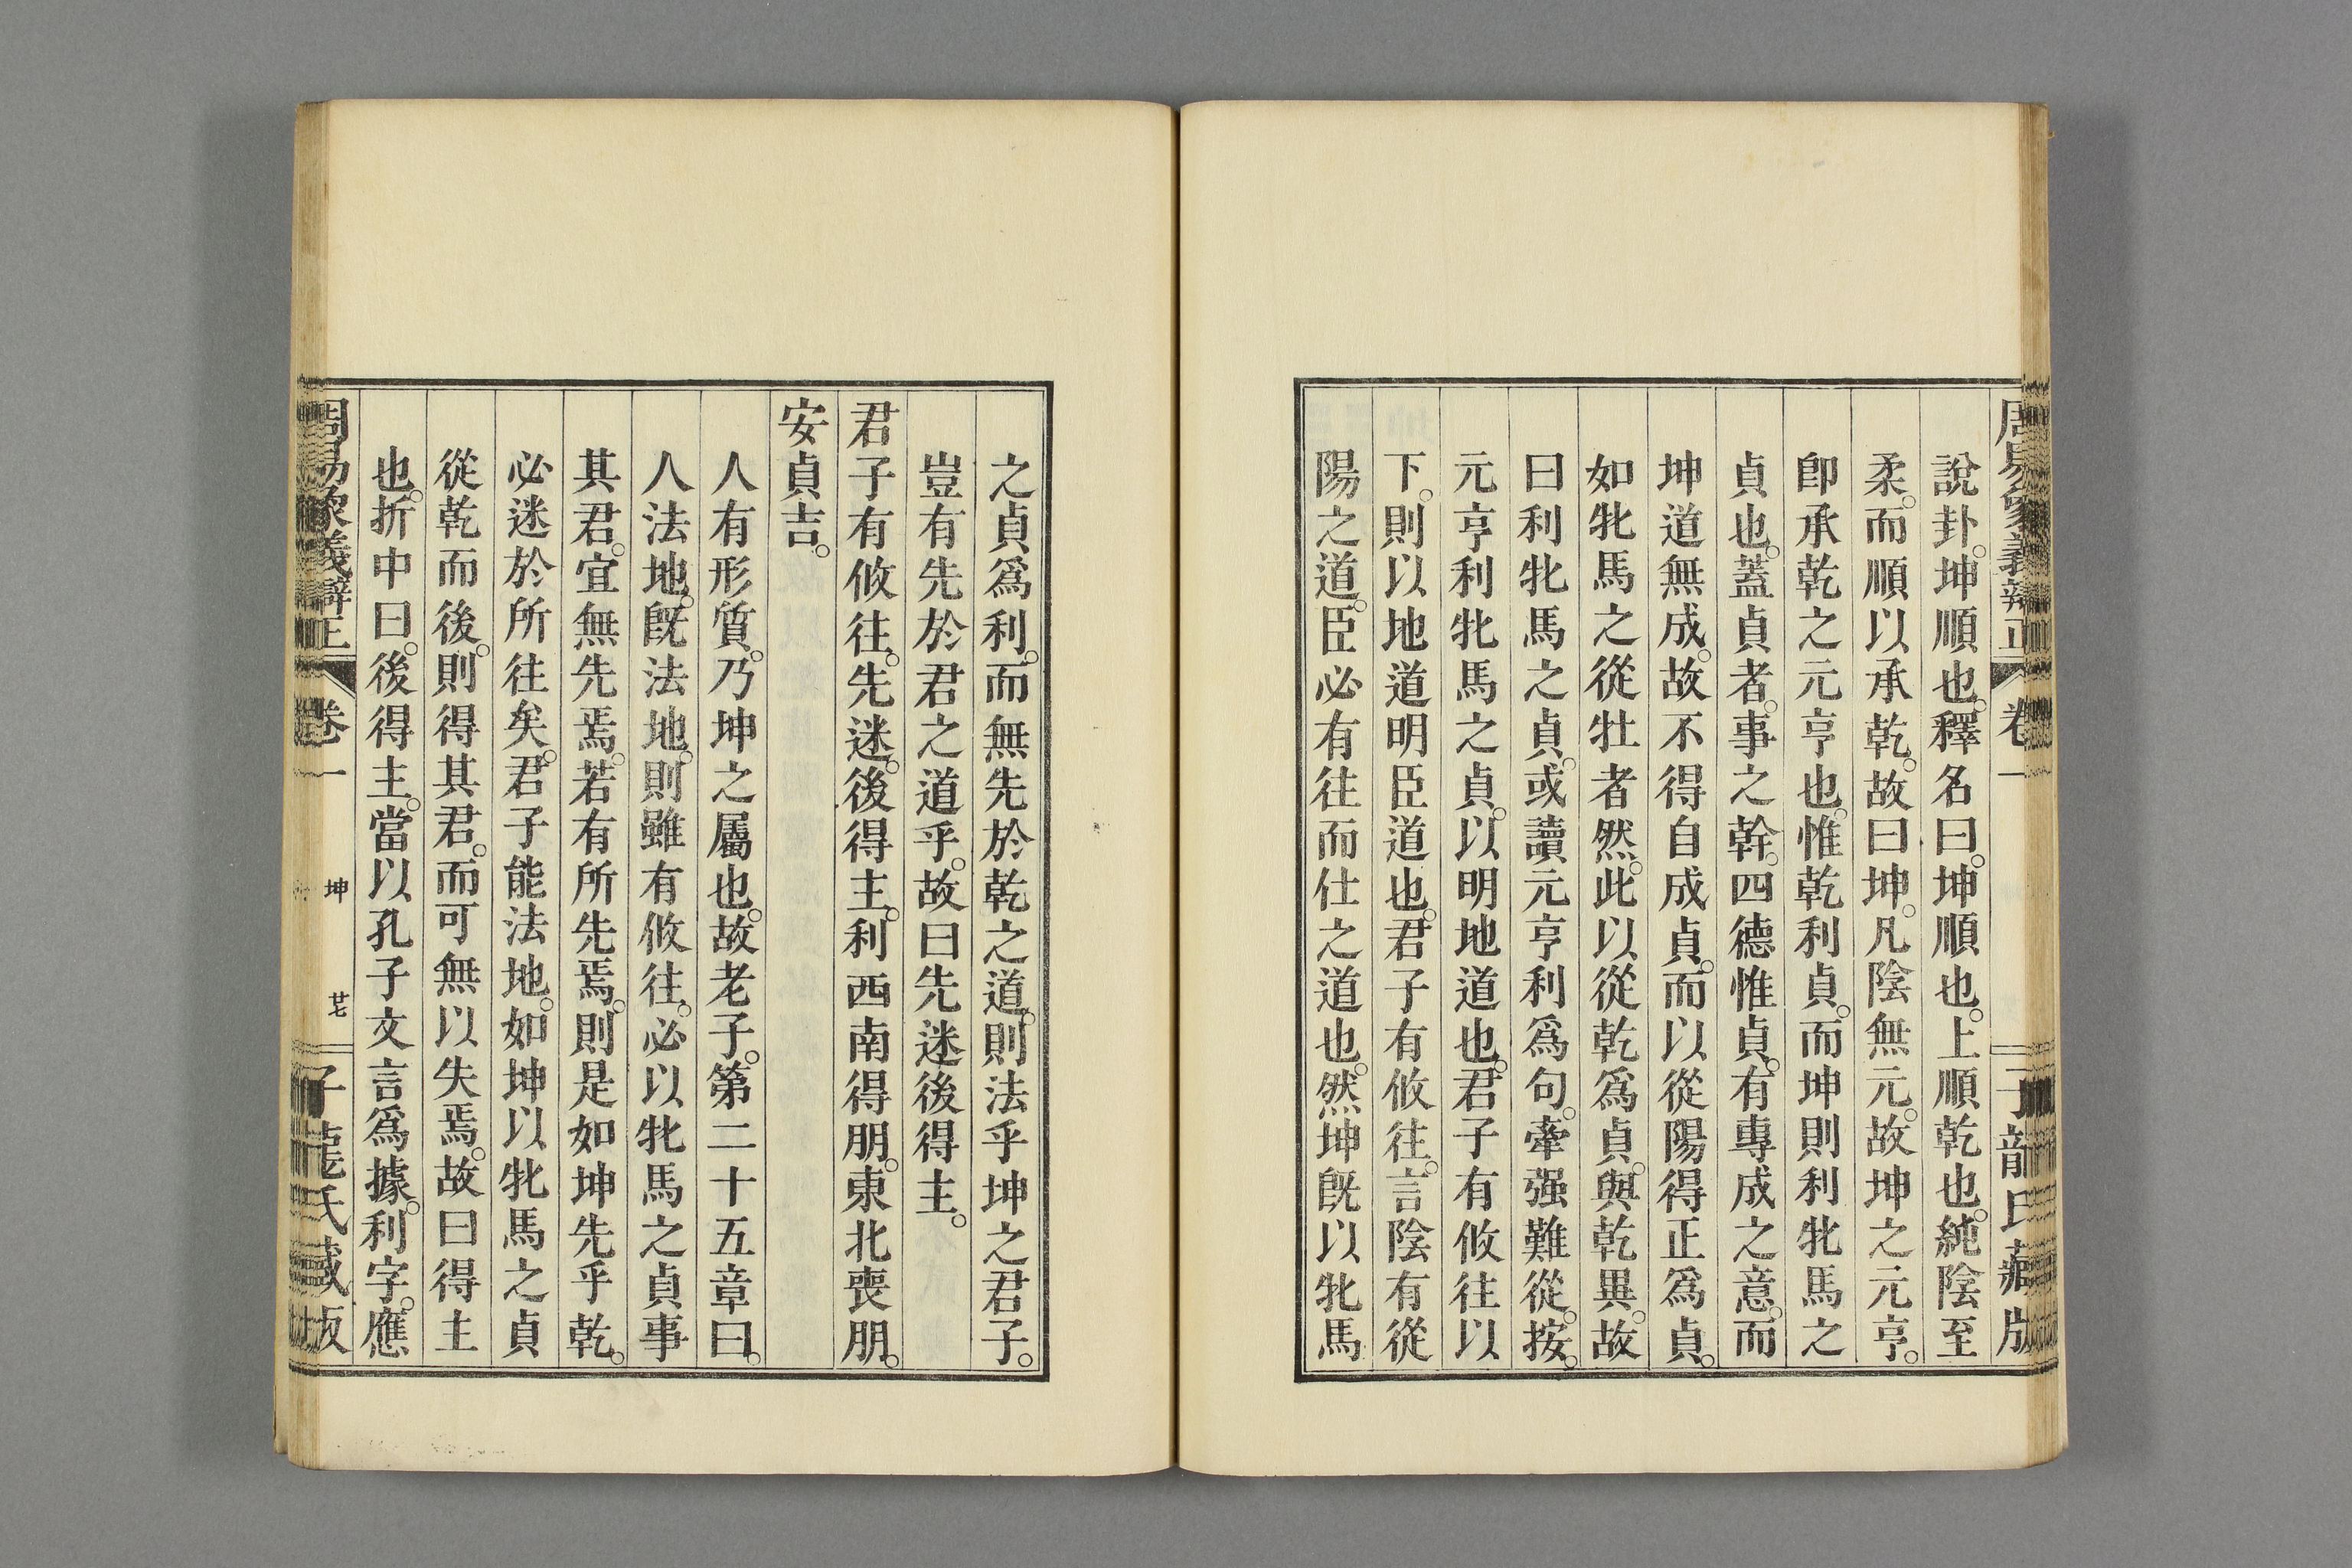 周易象義辨正 卷一 子龍氏藏版
說卦。坤順也。釋名曰。坤順也。上順乾也。純陰至
柔。而順以承乾。故曰坤。凡陰無元。故坤之元亨。
卽承乾之元亨也。惟乾利貞。而坤則利牝馬之
貞也。蓋貞者。事之幹。四德惟貞。有專成之意。而
坤道無成。故不得自成貞。而以從陽得正爲貞。
如牝馬之從牡者然。此以從乾爲貞。與乾異。故
曰利牝馬之貞。或讀元亨利爲句。牽强難從。按。
元亨利牝馬之貞。以明地道也。君子有攸往以
下。則以地道明臣道也。君子有攸往。言陰有從
陽之道。臣必有往而仕之道也。然坤旣以牝馬
之貞爲利。而無先於乾之道。則法乎坤之君子。
豈有先於君之道乎。故曰先迷後得主。
君子有攸往。先迷。後得主。利西南得朋。東北喪朋。
安貞吉。
人有形質。乃坤之屬也。故老子。第二十五章曰。
人法地。旣法地。則雖有攸往。必以牝馬之貞事
其君。宜無先焉。若有所先焉。則是如坤先乎乾。
必迷於所往矣。君子能法地。如坤以牝馬之貞
從乾而後。則得其君。而可無以失焉。故曰得主
也。折中曰。後得主。當以孔子文言爲據。利字。應
周易象義辨正 卷一 坤 廿七 子龍氏藏版